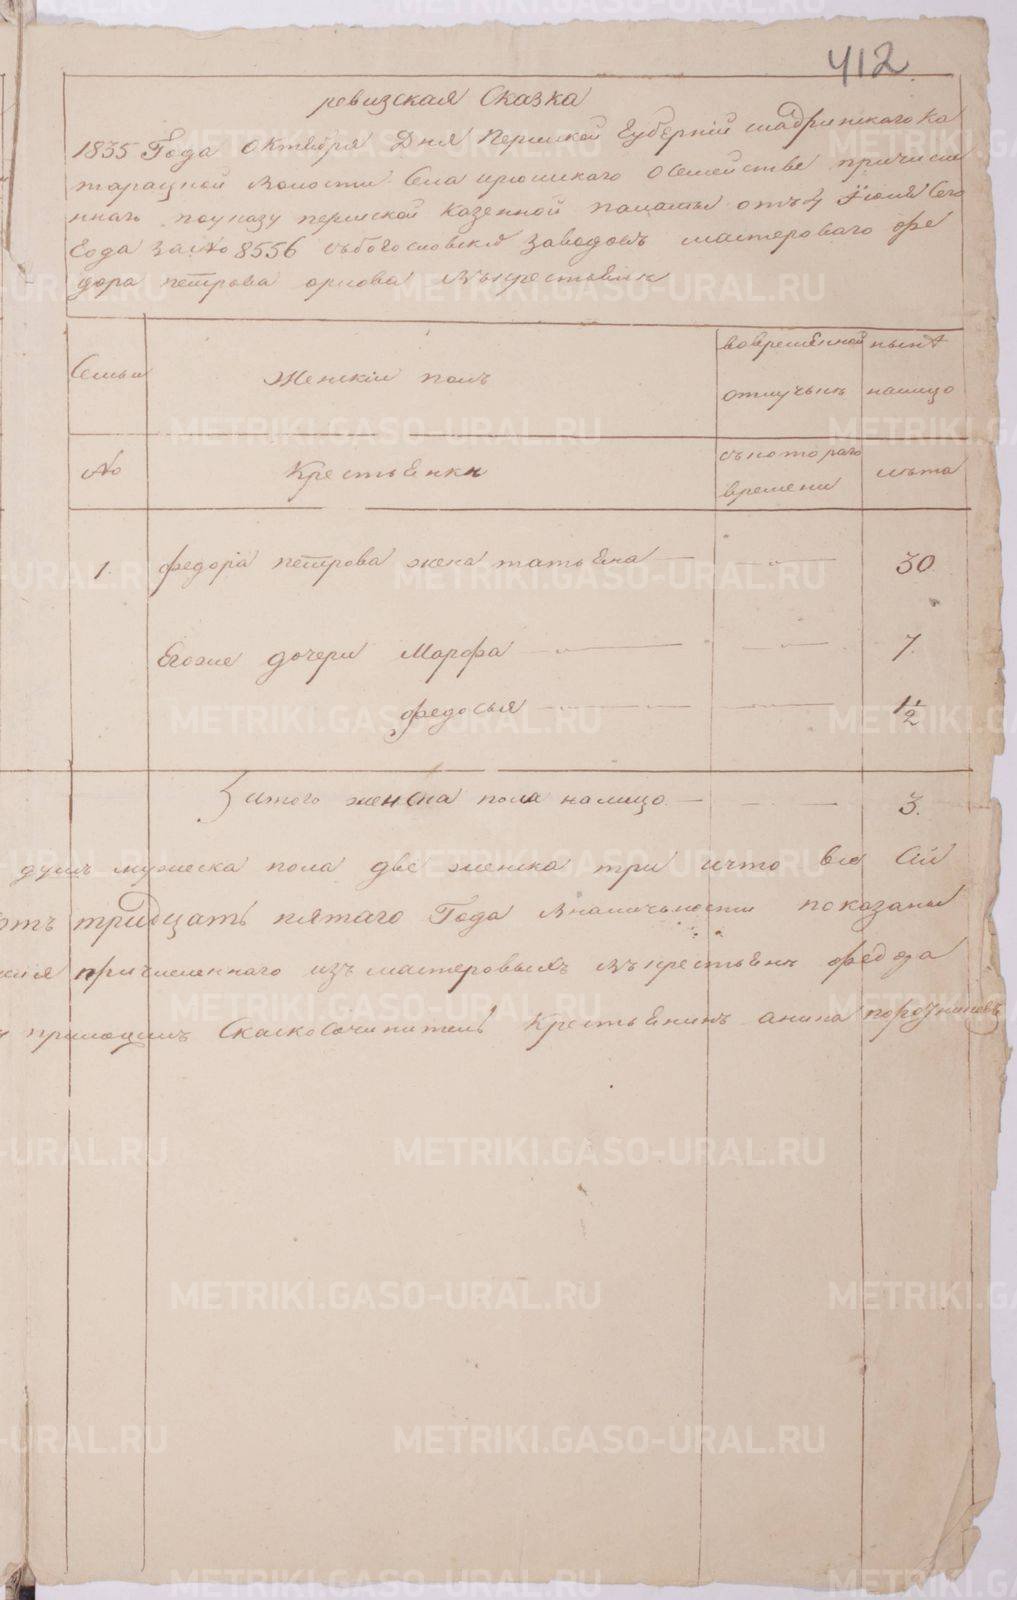 412.
ревизская Сказка
1835 Года Октября Дня Пермской Губернии шадринскаго Ка
тарацкой волости Села ирюмскаго Осемействе причисле
ннаго поуказу пермской Казенной палаты отъ 4 Июля Сего
Года за№ 8556 събогословскихъ заводовъ мастероваго фе
дора петрова орлова въкрестьяне
Семьи
Женский полъ
вовременной
отлучьке
ныне
налицо
№
Крестьянки
скотораго
времени
лета
1. федора петрова жена татьяна — — 30
Егоже дочери Марфа — — 7.
федосья — — 1 1/2
итого женска пола налицо — — 3.
душъ мужеска пола две женска три ичто все Сии
тридцать пятаго Года вналичьности показаны
причисленнаго изъ мастеровыхъ въкрестьяне федора
Скаскосочинитель Крестьянинъ
METRIKI.GASO-URAL.RU